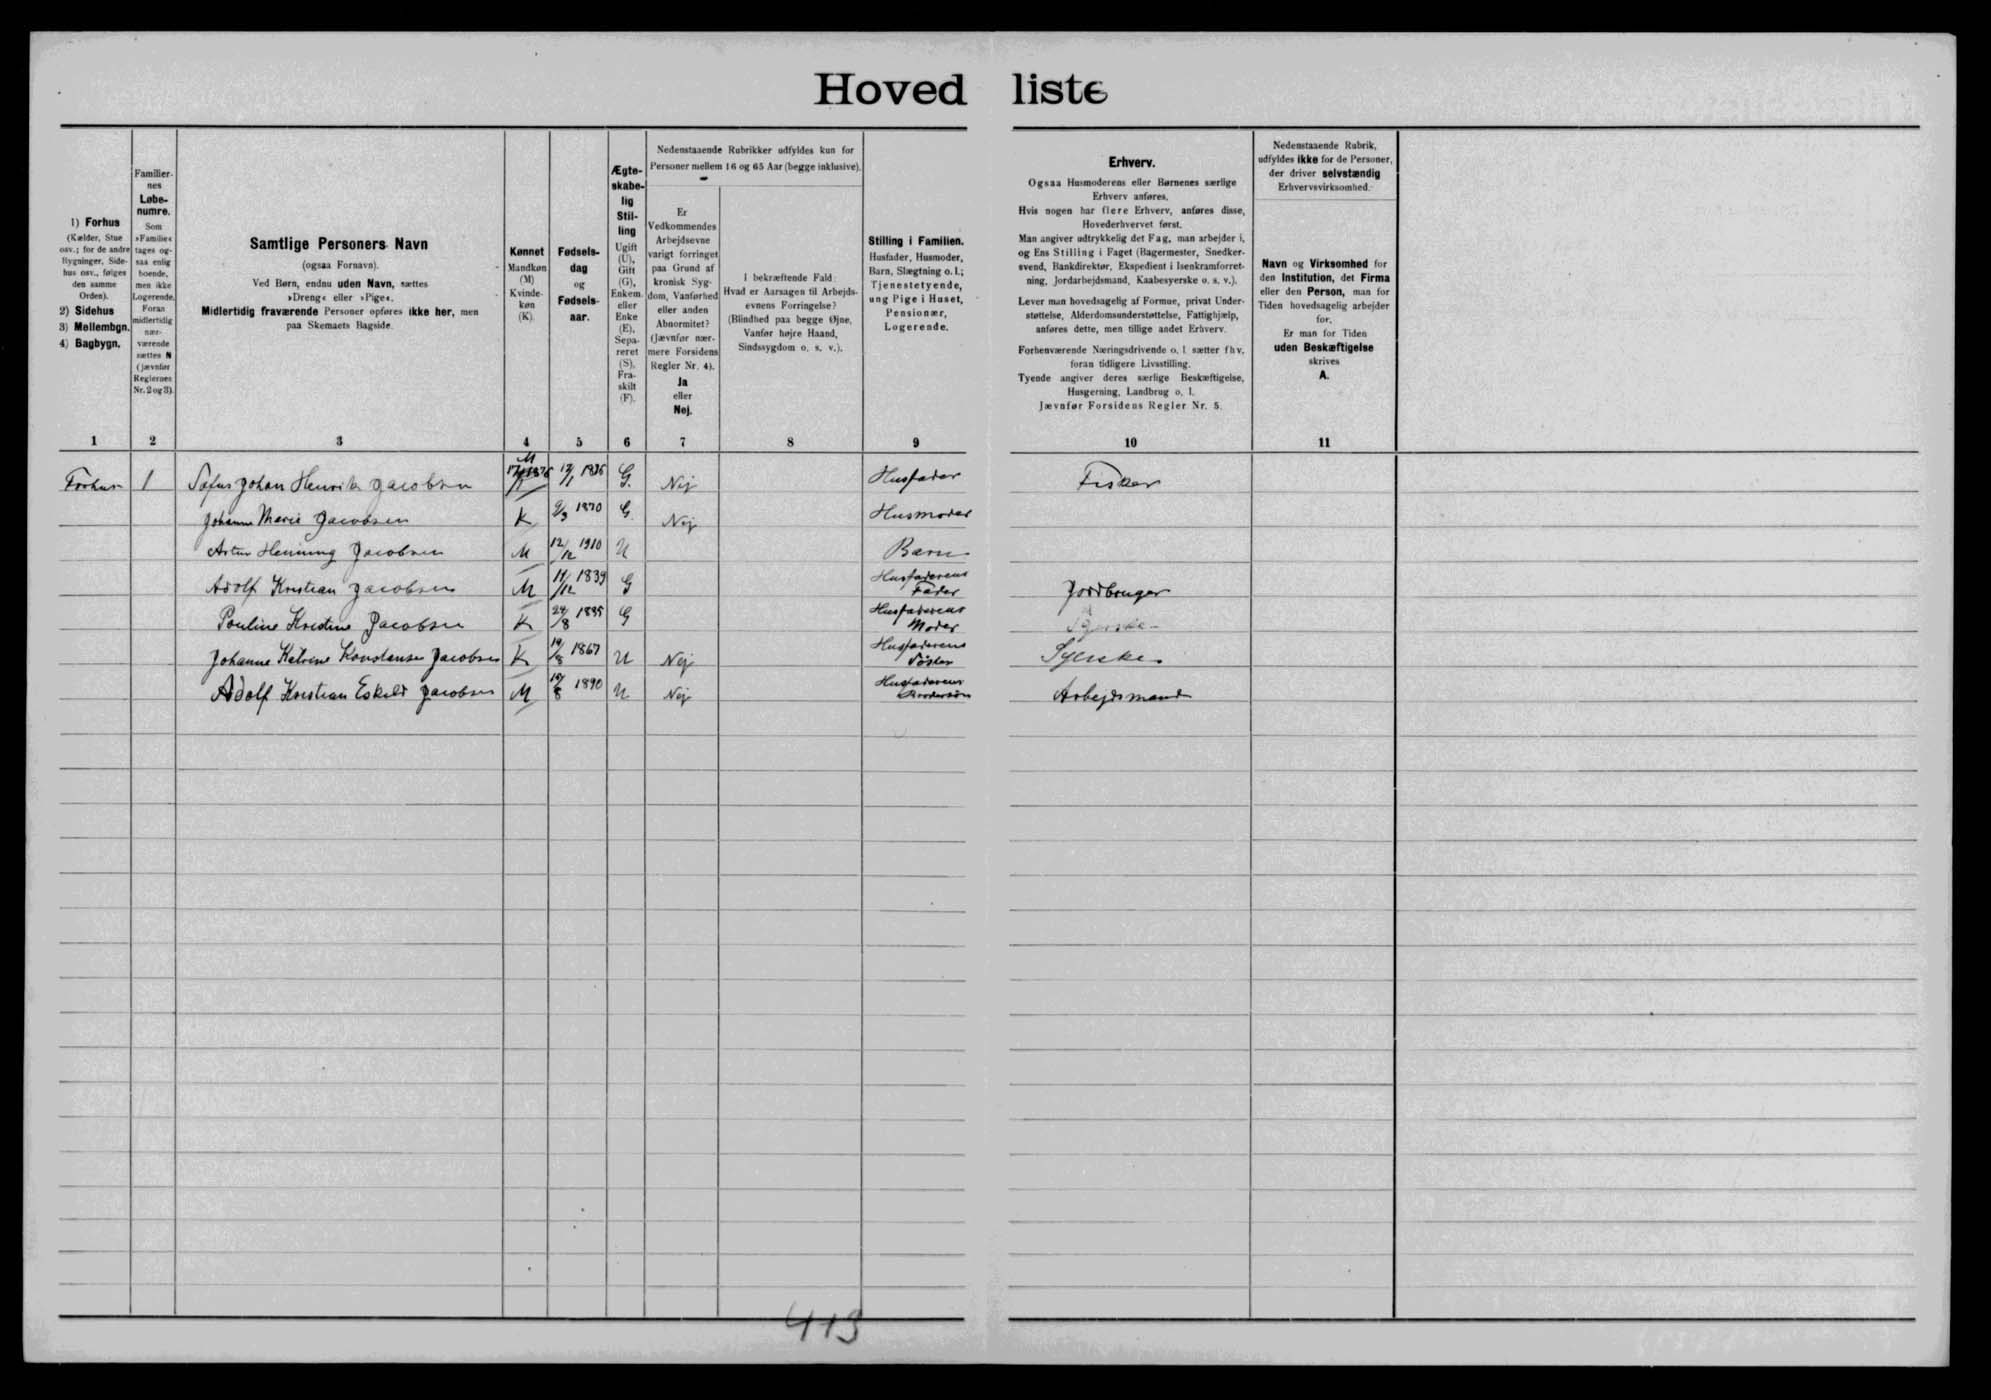 Hovedliste
1) Forhus
(Kælder, Stue
osv.; for de andre
Bygninger, Side-
hus osv., følges
den samme
Orden).
2) Sidehus
3) Mellembgn.
4) Bagbygn.
Familier-
nes
Løbe-
numre.
Som
»Familie«
tages og-
saa enlig
boende,
men ikke
Logerende.
Foran
midlertidig
nær-
værende
sættes N
(jævnfør
Reglernes
Nr. 2 og 3).
Samtlige Personers Navn
(ogsaa Fornavn).
Ved Børn, endnu uden Navn, sættes
»Dreng« eller »Pige«.
Midlertidig fraværende Personer opføres ikke her, men
paa Skemaets Bagside.
Kønnet
Mandkøn
(M)
Kvinde-
køn
(K).
Fødsels-
dag
og
Fødsels-
aar.
Ægte-
skabe-
lig
Stil-
ling
Ugift
(U),
Gift
(G),
Enkem.
eller
Enke
(E),
Sepa-
reret
(S),
Fra-
skilt
(F).
Nedenstaaende Rubrikker udfyldes kun for
Personer mellem 16 og 65 Aar (begge inklusive).
Er
Vedkommendes
Arbejdsevne
varigt forringet
paa Grund af
kronisk Syg-
dom, Vanførhed
eller anden
Abnormitet?
(Jævnfør nær-
mere Forsidens
Regler Nr. 4).
Ja
eller
Nej.
I bekræftende Fald:
Hvad er Aarsagen til Arbejds-
evnens Forringelse?
(Blindhed paa begge Øjne,
Vanfør højre Haand,
Sindssygdom o. s. v.).
Stilling i Familien.
Husfader, Husmoder,
Barn, Slægtning o. l.;
Tjenestetyende,
ung Pige i Huset,
Pensionær,
Logerende.
Erhverv.
Ogsaa Husmoderens eller Børnenes særlige
Erhverv anføres.
Hvis nogen har flere Erhverv, anføres disse,
Hovederhvervet først.
Man angiver udtrykkelig det Fag, man arbejder i,
og Ens Stilling i Faget (Bagermester, Snedker-
svend, Bankdirektør, Ekspedient i Isenkramforret-
ning, Jordarbejdsmand, Kaabesyerske o. s. v.).
Lever man hovedsagelig af Formue, privat Under-
støttelse, Alderdomsunderstøttelse, Fattighjælp,
anføres dette, men tillige andet Erhverv.
Forhenværende Næringsdrivende o. l. sætter fhv.
foran tidligere Livsstilling.
Tyende angiver deres særlige Beskæftigelse,
Husgerning, Landbrug o. l.
Jævnfør Forsidens Regler Nr. 5.
Nedenstaaende Rubrik,
udfyldes ikke for de Personer,
der driver selvstændig
Erhvervsvirksomhed.
Navn og Virksomhed for
den Institution, det Firma
eller den Person, man for
Tiden hovedsagelig arbejder
for.
Er man for Tiden
uden Beskæftigelse
skrives
A.
1 2 3 4 5 6 7 8 9 10 11
Forhus 1 Sofus Johan Henrik Jacobsen M G. Nej Husfader Fisker
Johanne Marie Jacobsen K 9/3 1870 G Nej Husmoder
Artur Henning Jacobsen M 12/12 1910 U Barn
Adolf Kristian Jacobsen M 11/12 1839 G Husfaderens Fader Jordbruger
Pouline Kristine Jacobsen K G Husfaderens Moder
Johanne Katrine Konstanse Jacobsen K 19/8 1867 U Nej Husfaderens Søster Syerske
Adolf Kristian Eskild Jacobsen M 1890 U Nej Husfaderens Brodersøn Arbejdsmand
413